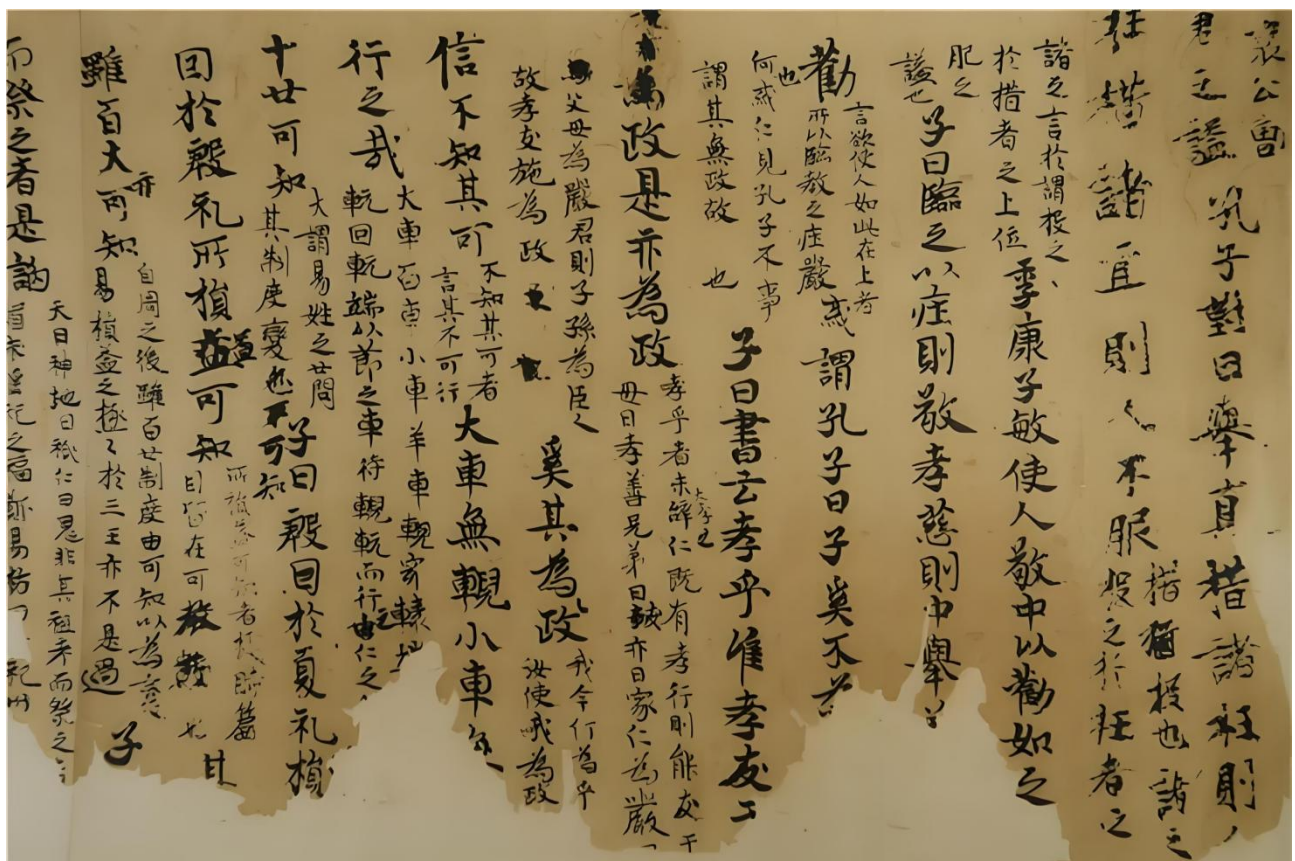 哀公魯
君之謚
孔子對曰舉直措諸枉則
枉措諸直則人不服
措猶投也諸之
投之於枉者之
諸之言於謂投之
於措者之上位
季康子敏使人敬中以勸如之
服之
謚也
子曰臨之以庄則敬孝慈則中舉
勸
言欲使人如此在上者
所以臨教之庄嚴也
或謂孔子曰子奚不為
何或仁見孔子不事
謂其無政故也
子曰書云孝乎惟孝友于
為政是亦為政
孝乎者大孝之辞仁既有孝行則能友于
母曰孝善兄弟曰友亦曰家仁為嚴
父母為嚴君則子孫為臣々
故孝友施為政
奚其為政
我今何為乎
汝使我為政
信不知其可
不知其可者
言其不可行
大車無輗小車無
行之哉
大車百車小車羊車輗穿轅
軏回軏端以節之車待輗軏而行之由仁之
十廿可知
大謂易姓之廿問
其制度變也
可知
子曰殷因於夏礼損
因於殷礼所損益可知
所損益可知者
目皆在可
其
雖百大亦可知
自周之後雖百廿制度由可知以為變
易損益之極々於三王亦不是過
子
而祭之者是謟
天曰神地曰祇仁曰鬼非其祖而祭之